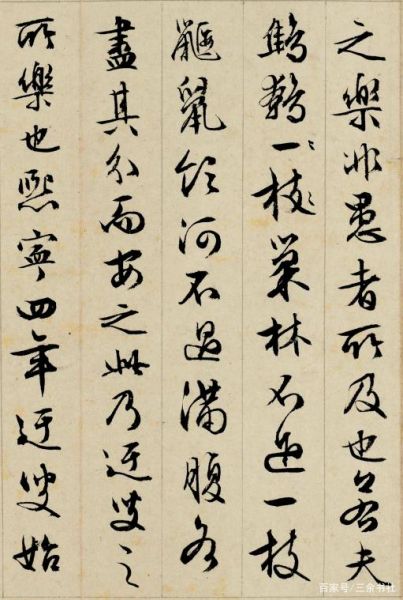 之樂非愚者所及也若夫
鷦鷯一枝巢林不過一枝
鼴鼠飲河不過滿腹各
盡其分而安之此乃迂叟之
所樂也熙寧四年迂叟始
百家号/三余书社